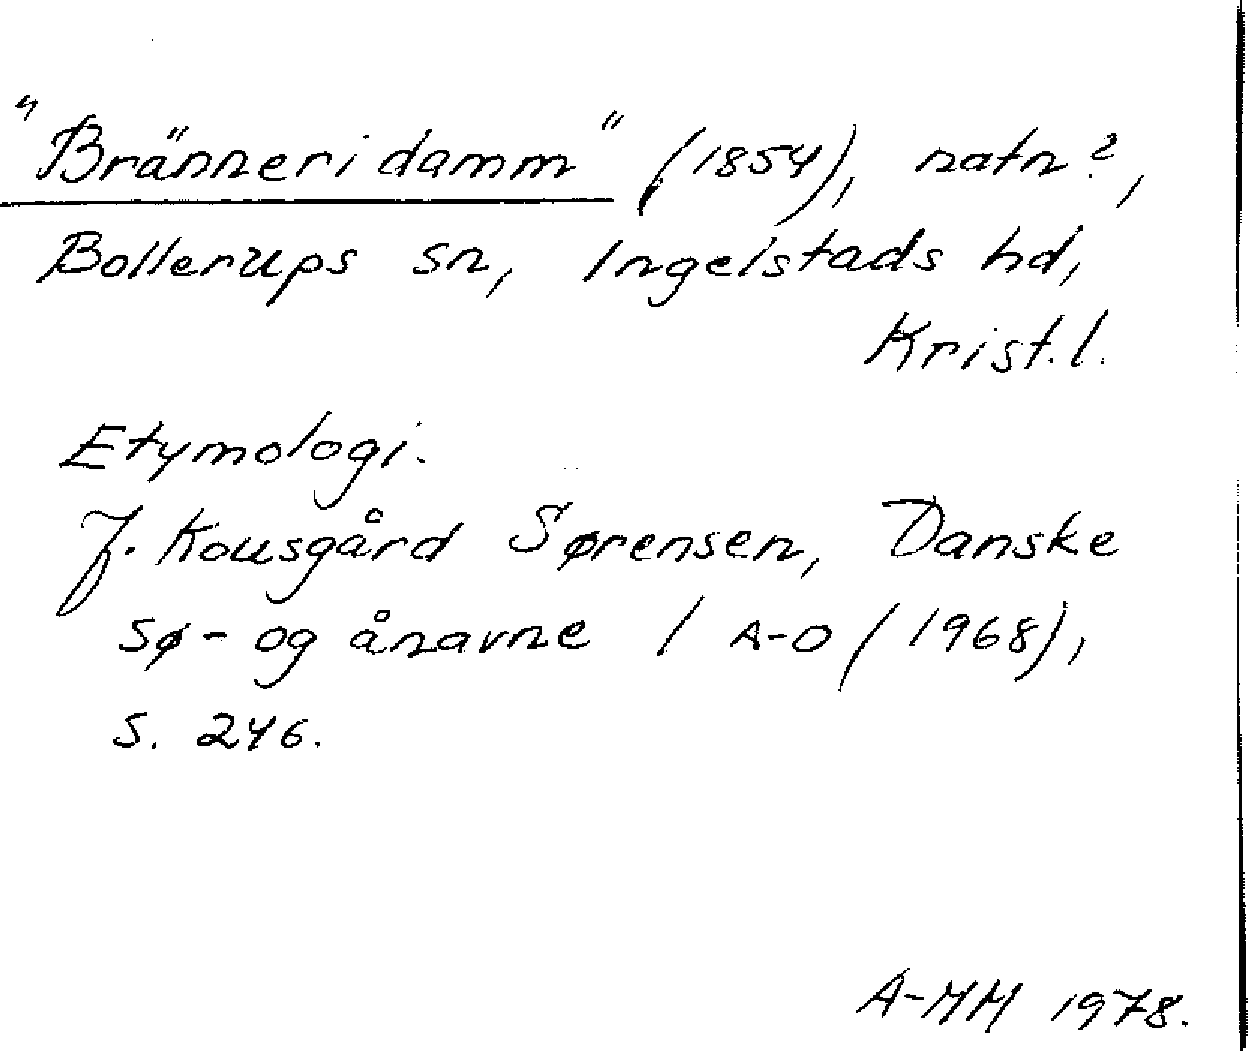 "Bränneridamm" (1854), natn?,
Bollerups sn, Ingelstads hd,
Krist. l.
Etymologi.
J. Kousgård Sørensen, Danske
sø- og ånavne I A-O (1968),
s. 246.
A-MM 1978.